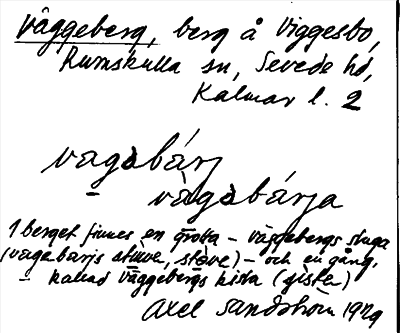 Väggeberg, berg å Viggesbo,
Rumskulla sn, Sevede hd,
Kalmar l. 2
vagabárj
vàgabárja
I berget finnes en grotta – väggebergs stuga
(vagabarjs stuwe, ståve) – och en gång,
– kallad väggebergs kista (gista)
Axel Sandström 1929